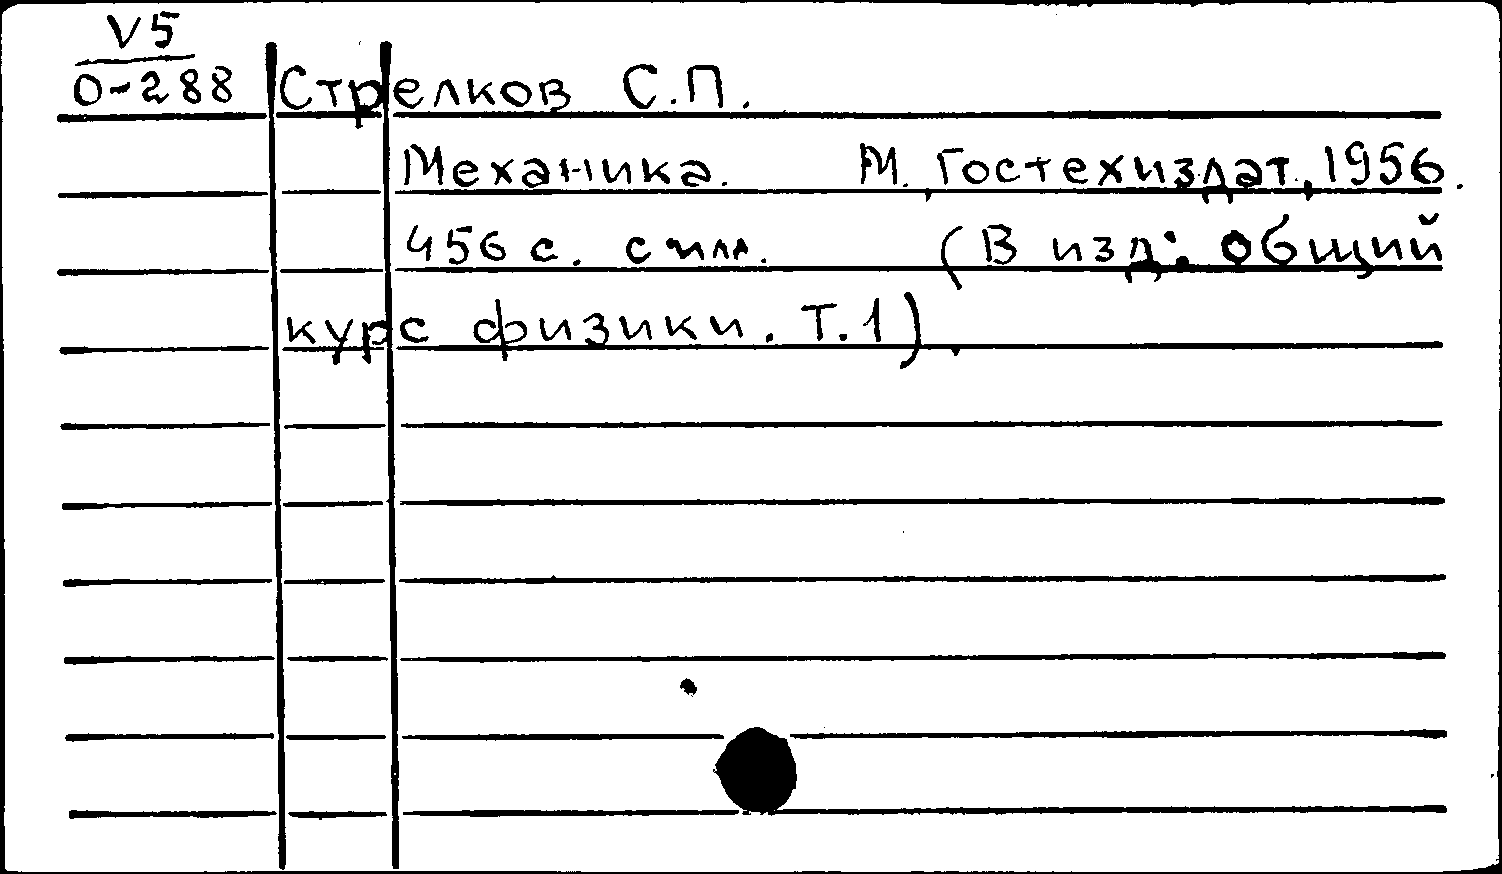 V5
О-288 Стрелков С.П.
Механика. М., Гостехиздат, 1956.
456 с. с илл. (В изд.: общий
курс физики. Т.1).